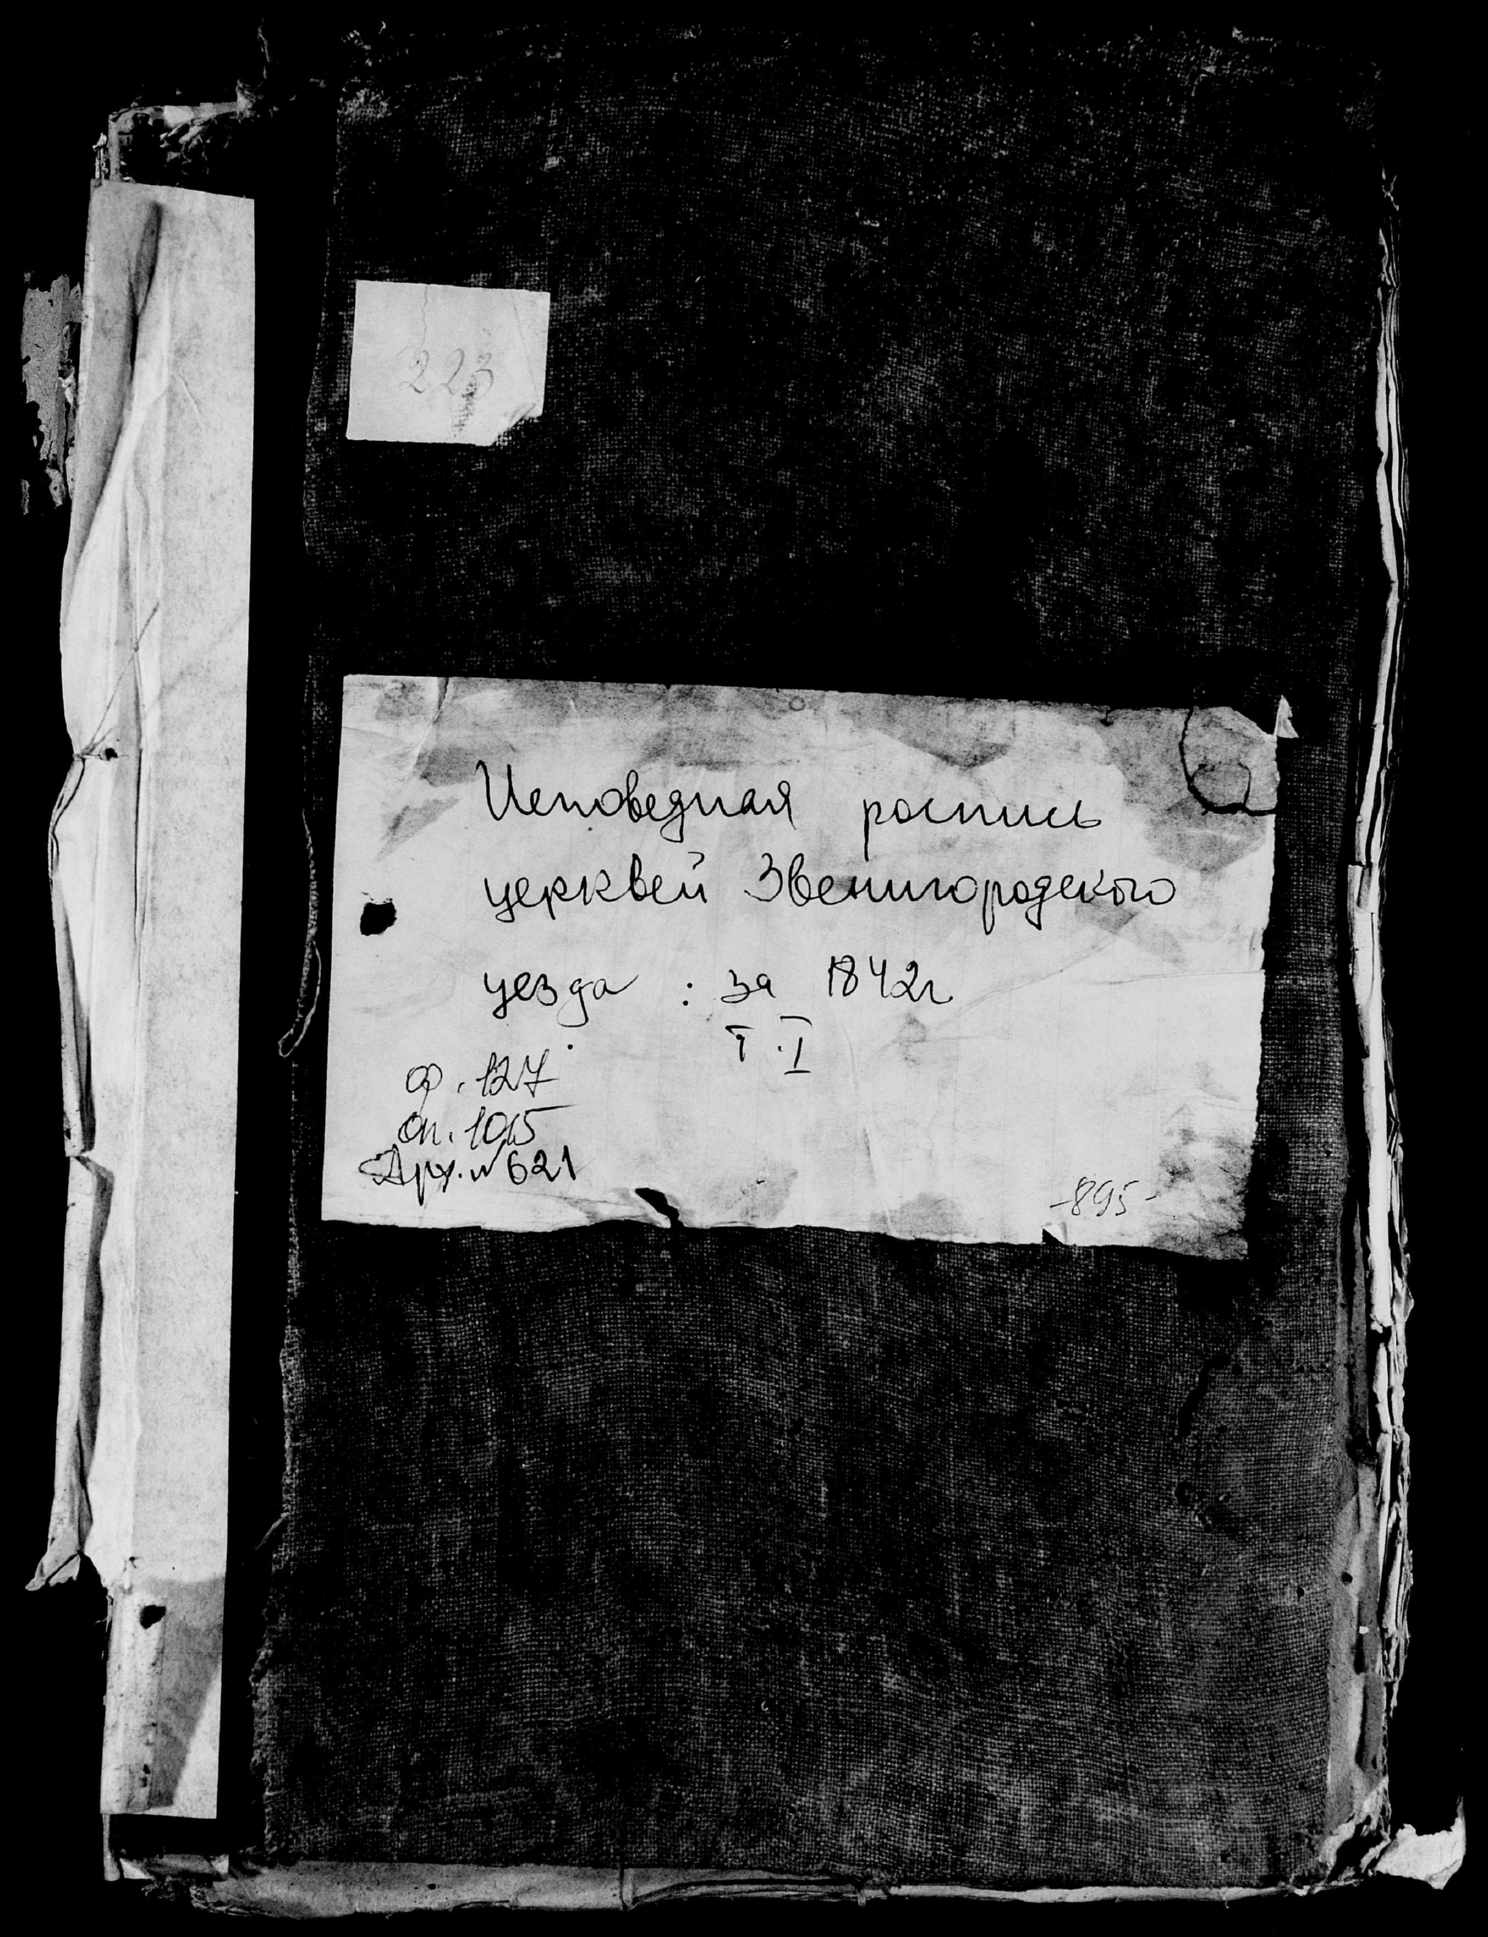 223
Исповедная роспись
церквей Звенигородского
уезда : за 1842г
т. I
ф. 127
оп. 1015
Арх. № 621
-895-